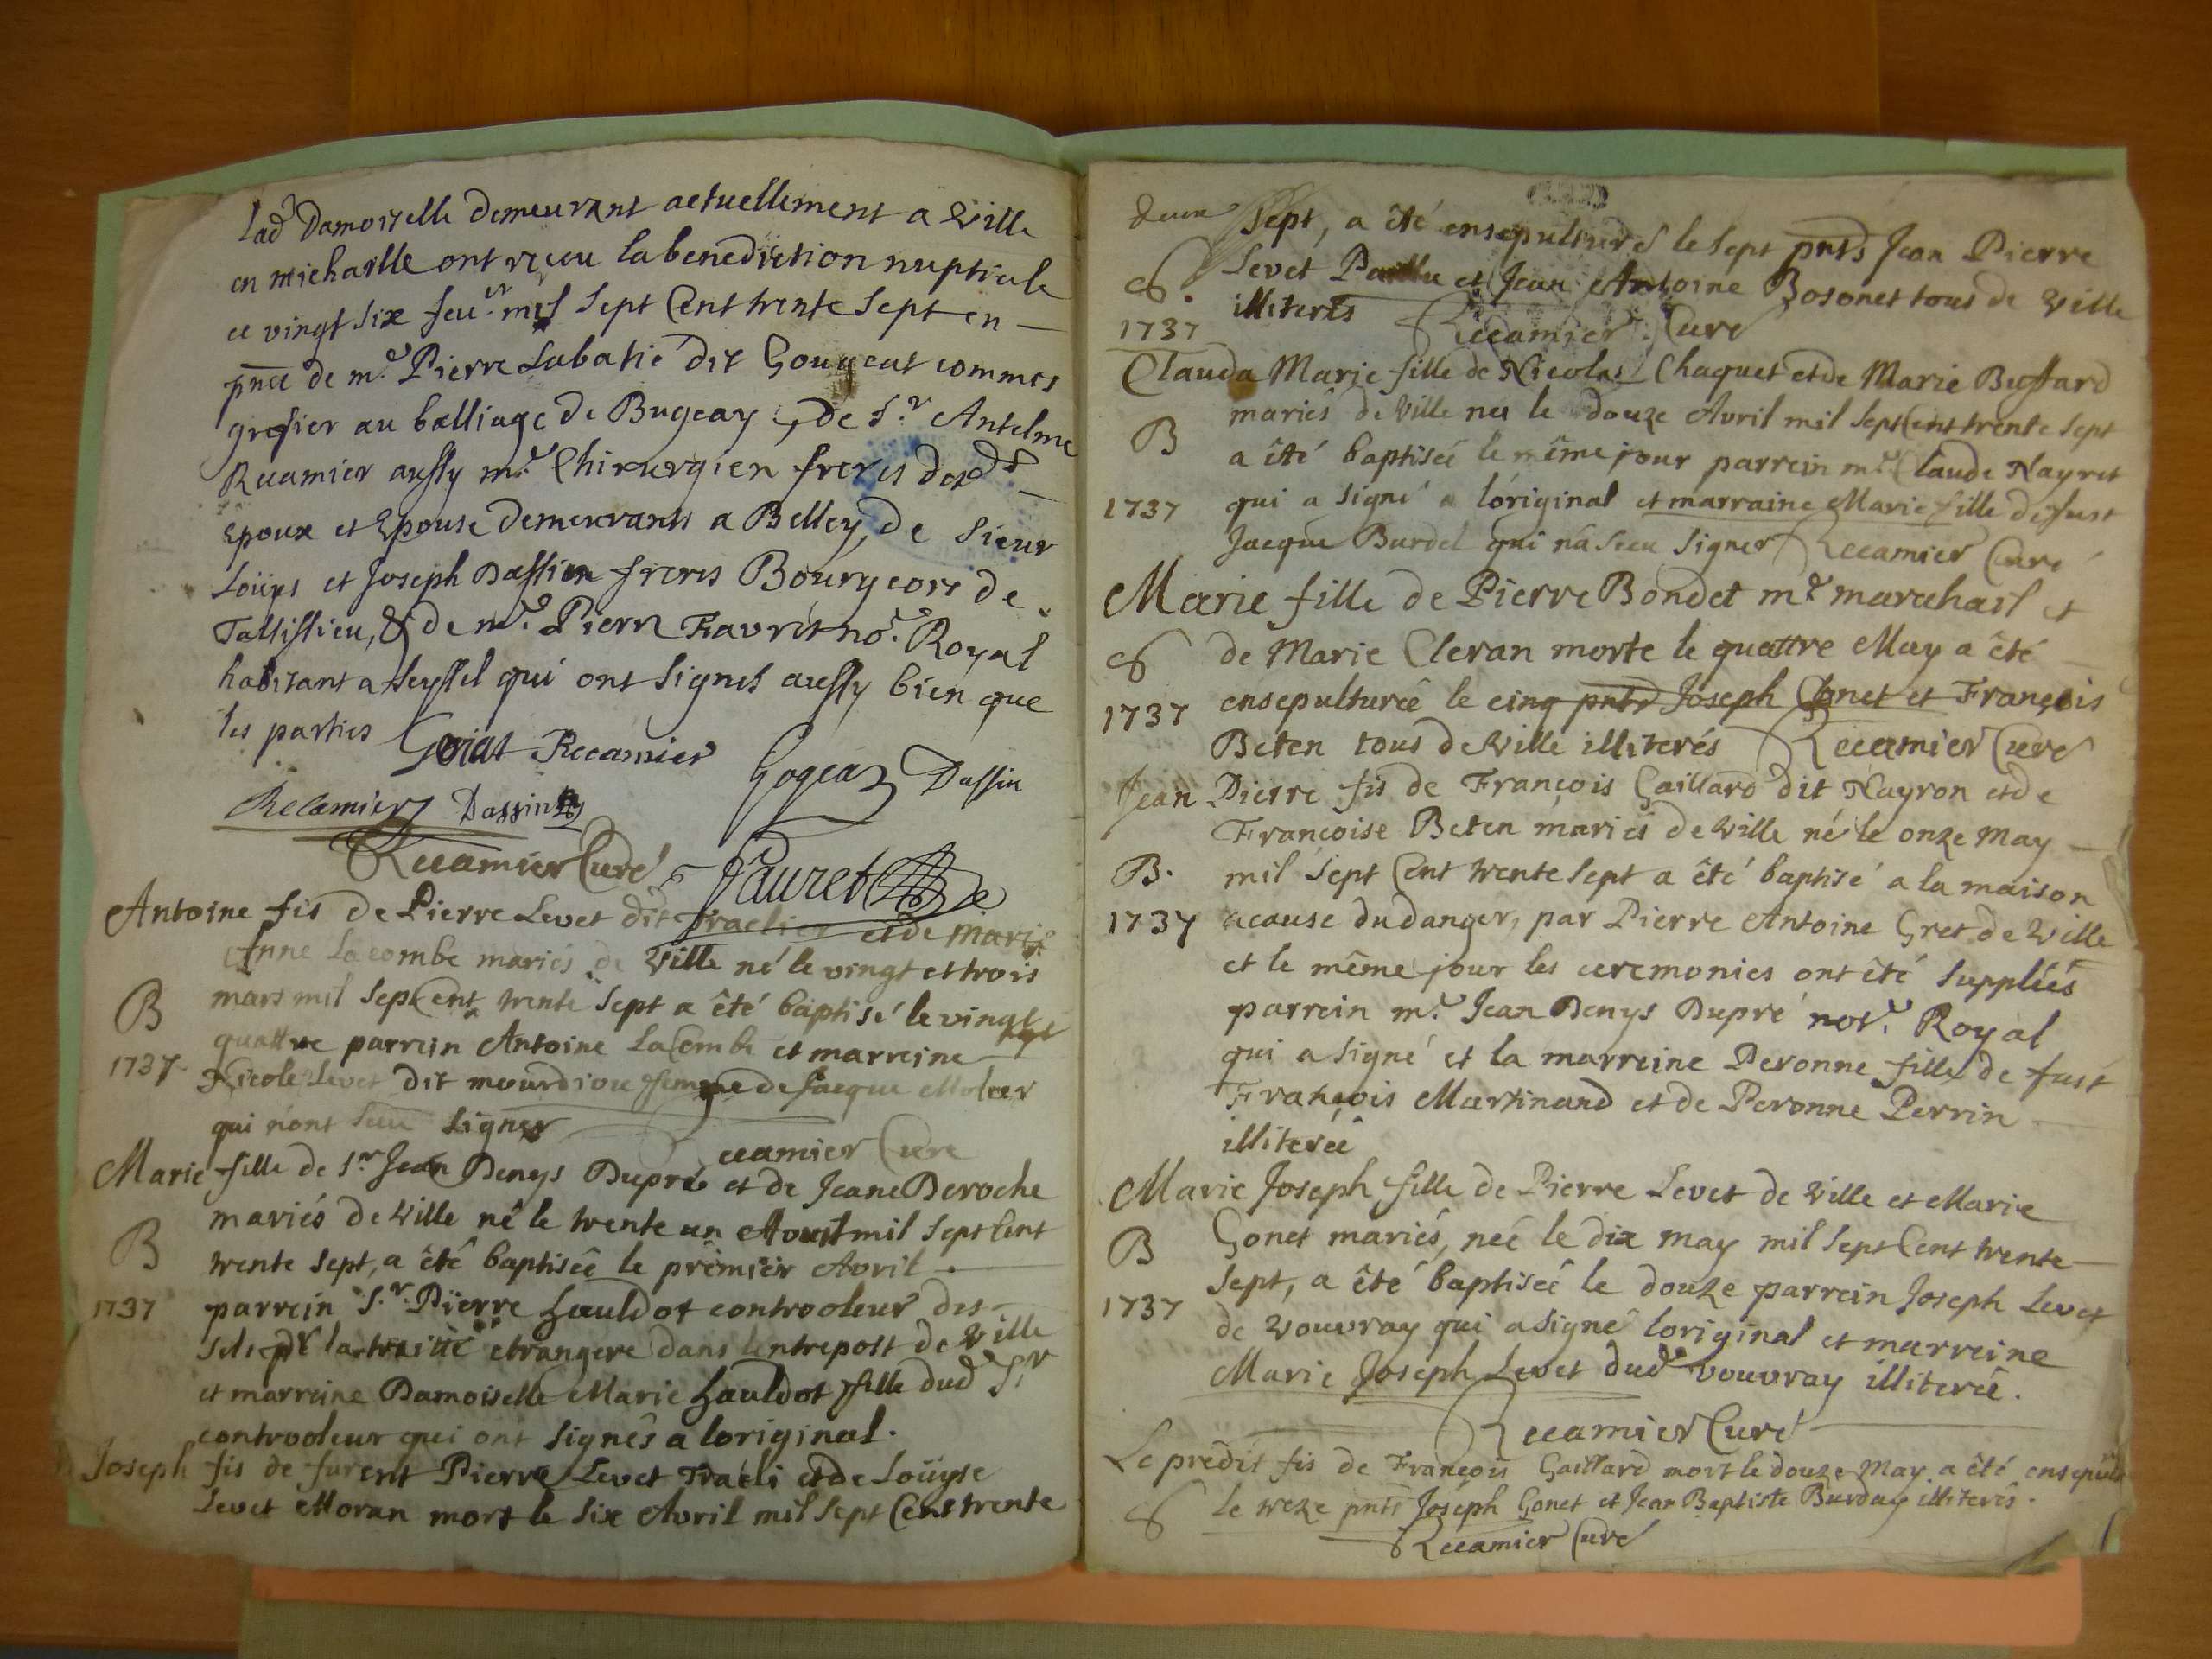 lad. Damoiselle demeurant actuellement a Ville
en michaille ont reçeu la benediction nuptiale
ce vingt six feu.er mil sept Cent trente sept en
pnce de m.e Pierre Labatie dit Gougeat commes
grefier au balliage de Bugeay, de S.r Antelme
Recamier aussy m.e Chirurgien freres desd.
Epoux et Epouse demeurants a Belley, de Sieur
Loüys et Joseph Dassin freres Bourgeois de
Talissieu, & de m.e Pierre Favret no.e Royal
habitant a Seyssel qui ont signés aussy bien que
les parties Goiat Recamier Gogeat Dassin
Recamier Dassin
Recamier Curé Fauret
Antoine fis de Pierre Levet dit et de Marie
Anne Lacombe mariés de Ville né le vingt et trois
B mars mil sept Cent trente sept a êté baptisé le vingt
quattre parrein Antoine LaCombe et marreine
1737 Nicole Levet dit mourdiou femme de Jacque
qui n'ont sceu signer Recamier Cure
Marie fille de S.r Jean Denys Dupré et de Jeane Deroche
mariés de Ville né le trente un mil sept Cent
B trente sept, a êté baptiseê le premier Avril
1737 parrein S.r Pierre Lauldot controoleur des
sels pr la traitte etrangere dans l'entrepost de Ville
et marreine Damoiselle Marie Lauldot fille dud S.r
controoleur qui ont signés a loriginal.
Joseph fis de furent Pierre Levet Traeli et de Loüyse
Levet Moran mort le six Avril mil sept Cent trente
sept, a êté ensepulturé le sept pnts Jean Pierre
S. Levet et Jean Antoine Bosonet tous de Ville
1737 illiterés Recamier Curé
Clauda Marie fille de Nicolas Chaquet et de Marie Buffard
mariés de Ville neé le douze Avril mil sept Cent trente sept
B a êté baptiseé le même jour parrein m.e Claude Nayret
1737 qui a signé a l'original et marraine Marie fille de fust
Jacque Burdel qui n'a sceu signer Recamier Curé
Marie fille de Pierre Bondet m.e marechasl et
S de Marie Cleran morte le quattre May a êté
1737 ensepultureé le cinq pnts Joseph Gonet et François
Beten tous de Ville illiterés Recamier Curé
Jean Pierre fis de François Gaillard dit Nayron et de
Françoise Beten mariés de Ville né le onze May
B. mil sept Cent trente sept a êté baptisé a la maison
1737 acause du danger, par Pierre Antoine Gret de Ville
et le même jour les ceremonies ont êté suppléés
parrein m.e Jean Denys Dupré not.e Royal
qui a signé et la marreine Peronne fille de fust
François Martinand et de Peronne Perrin
illitereé
Marie Joseph fille de Pierre Levet de Ville et Marie
B Gonet mariés, neé le dix may mil sept Cent trente
1737 sept, a êté baptiseé le douze parrein Joseph Levet
de Vouvray qui a signé loriginal et marreine
Marie Joseph Levet dud. vouvray illitereé.
Recamier Curé
Le predit fis de François Gaillard mort le douze May a êté ensepult
S le treze pnts Joseph Gonet et Jean Baptiste Burday illiterés.
Recamier Curé